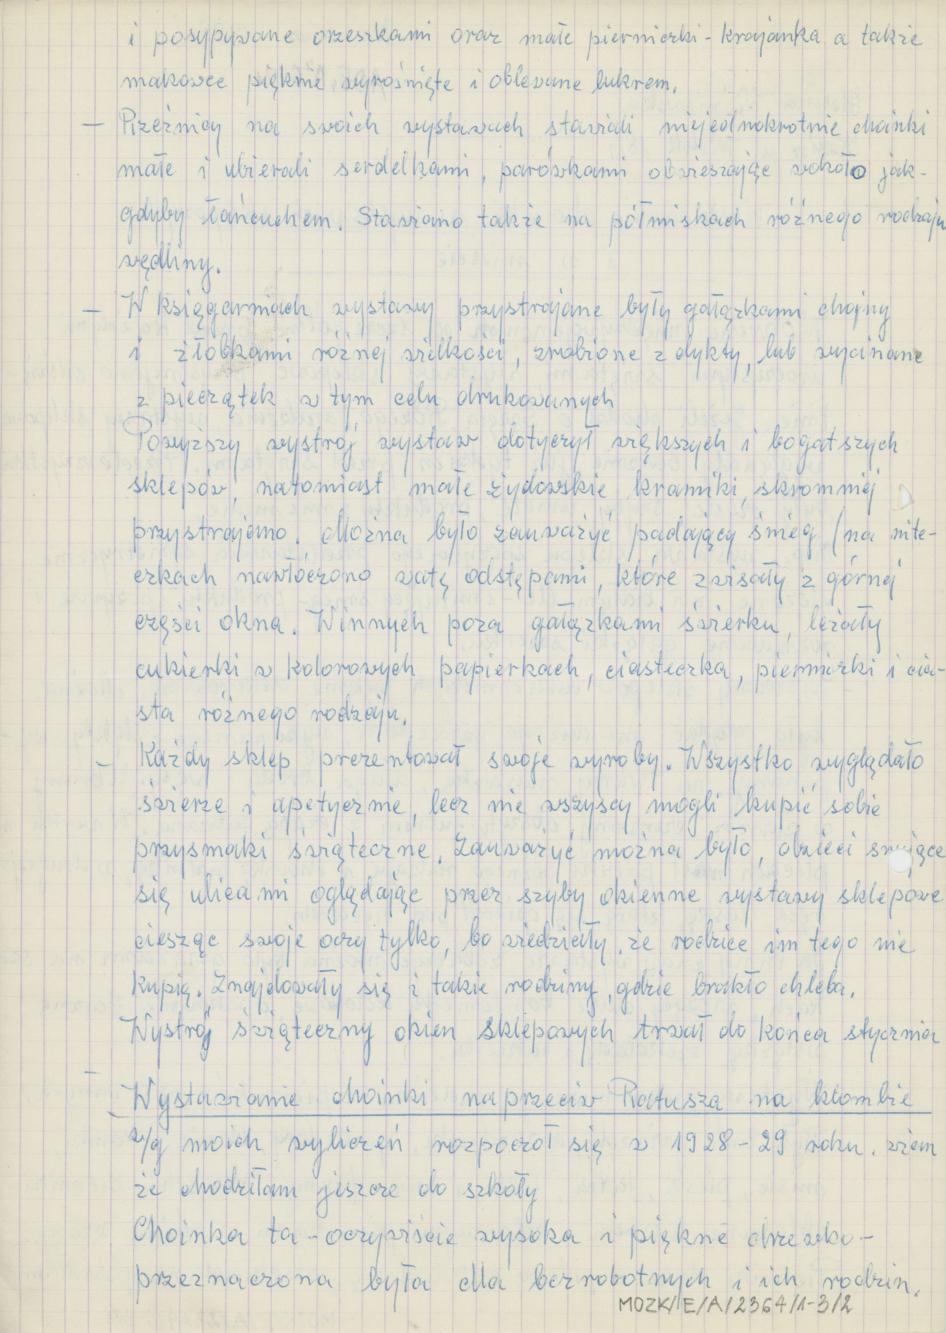 i posypywane orzeszkami oraz małe pierniczki - krajanka a także
makowce pięknie wyrośnięte i oblewane lukrem.
— Rzeźnicy na swoich wystawach stawiali niejednokrotnie choinki
małe i ubierali serdelkami, parówkami obwieszając wokoło jak-
gdyby łańcuchem. Stawiano także na półmiskach różnego rodzaju
wędliny.
— W księgarniach wystawy przystrajane były gałązkami chojny
i żłobkami różnej wielkości, zrobione z dykty, lub wycinane
z pieczątek w tym celu drukowanych
Powyższy wystrój wystaw dotyczył większych i bogatszych
sklepów, natomiast małe żydowskie kramiki, skromniej
przystrajano. Można było zauważyć padający śnieg (na nite-
czkach nawłóczono watę odstępami, które zwisały z górnej
części okna. W innych poza gałązkami świerku, leżały
cukierki w kolorowych papierkach, ciasteczka, pierniczki i cia-
sta różnego rodzaju.
— Każdy sklep prezentował swoje wyroby. Wszystko wyglądało
świeże i apetycznie, lecz nie wszyscy mogli kupić sobie
przysmaki świąteczne. Zauważyć można było, dzieci snujące
się ulicami oglądając przez szyby okienne wystawy sklepowe
ciesząc swoje oczy tylko, bo wiedziały, że rodzice im tego nie
kupią. Znajdowały się i takie rodziny, gdzie brakło chleba.
Wystrój świąteczny okien sklepowych trwał do końca stycznia
— Wystawianie choinki naprzeciw Ratusza na klombie
w/g moich wyliczeń rozpoczął się w 1928-29 roku. wiem
że chodziłam jeszcze do szkoły
Choinka ta - oczywiście wysoka i piękne drzewko -
przeznaczona była dla bezrobotnych i ich rodzin.
MOZK/E/A/2364/1-3/2